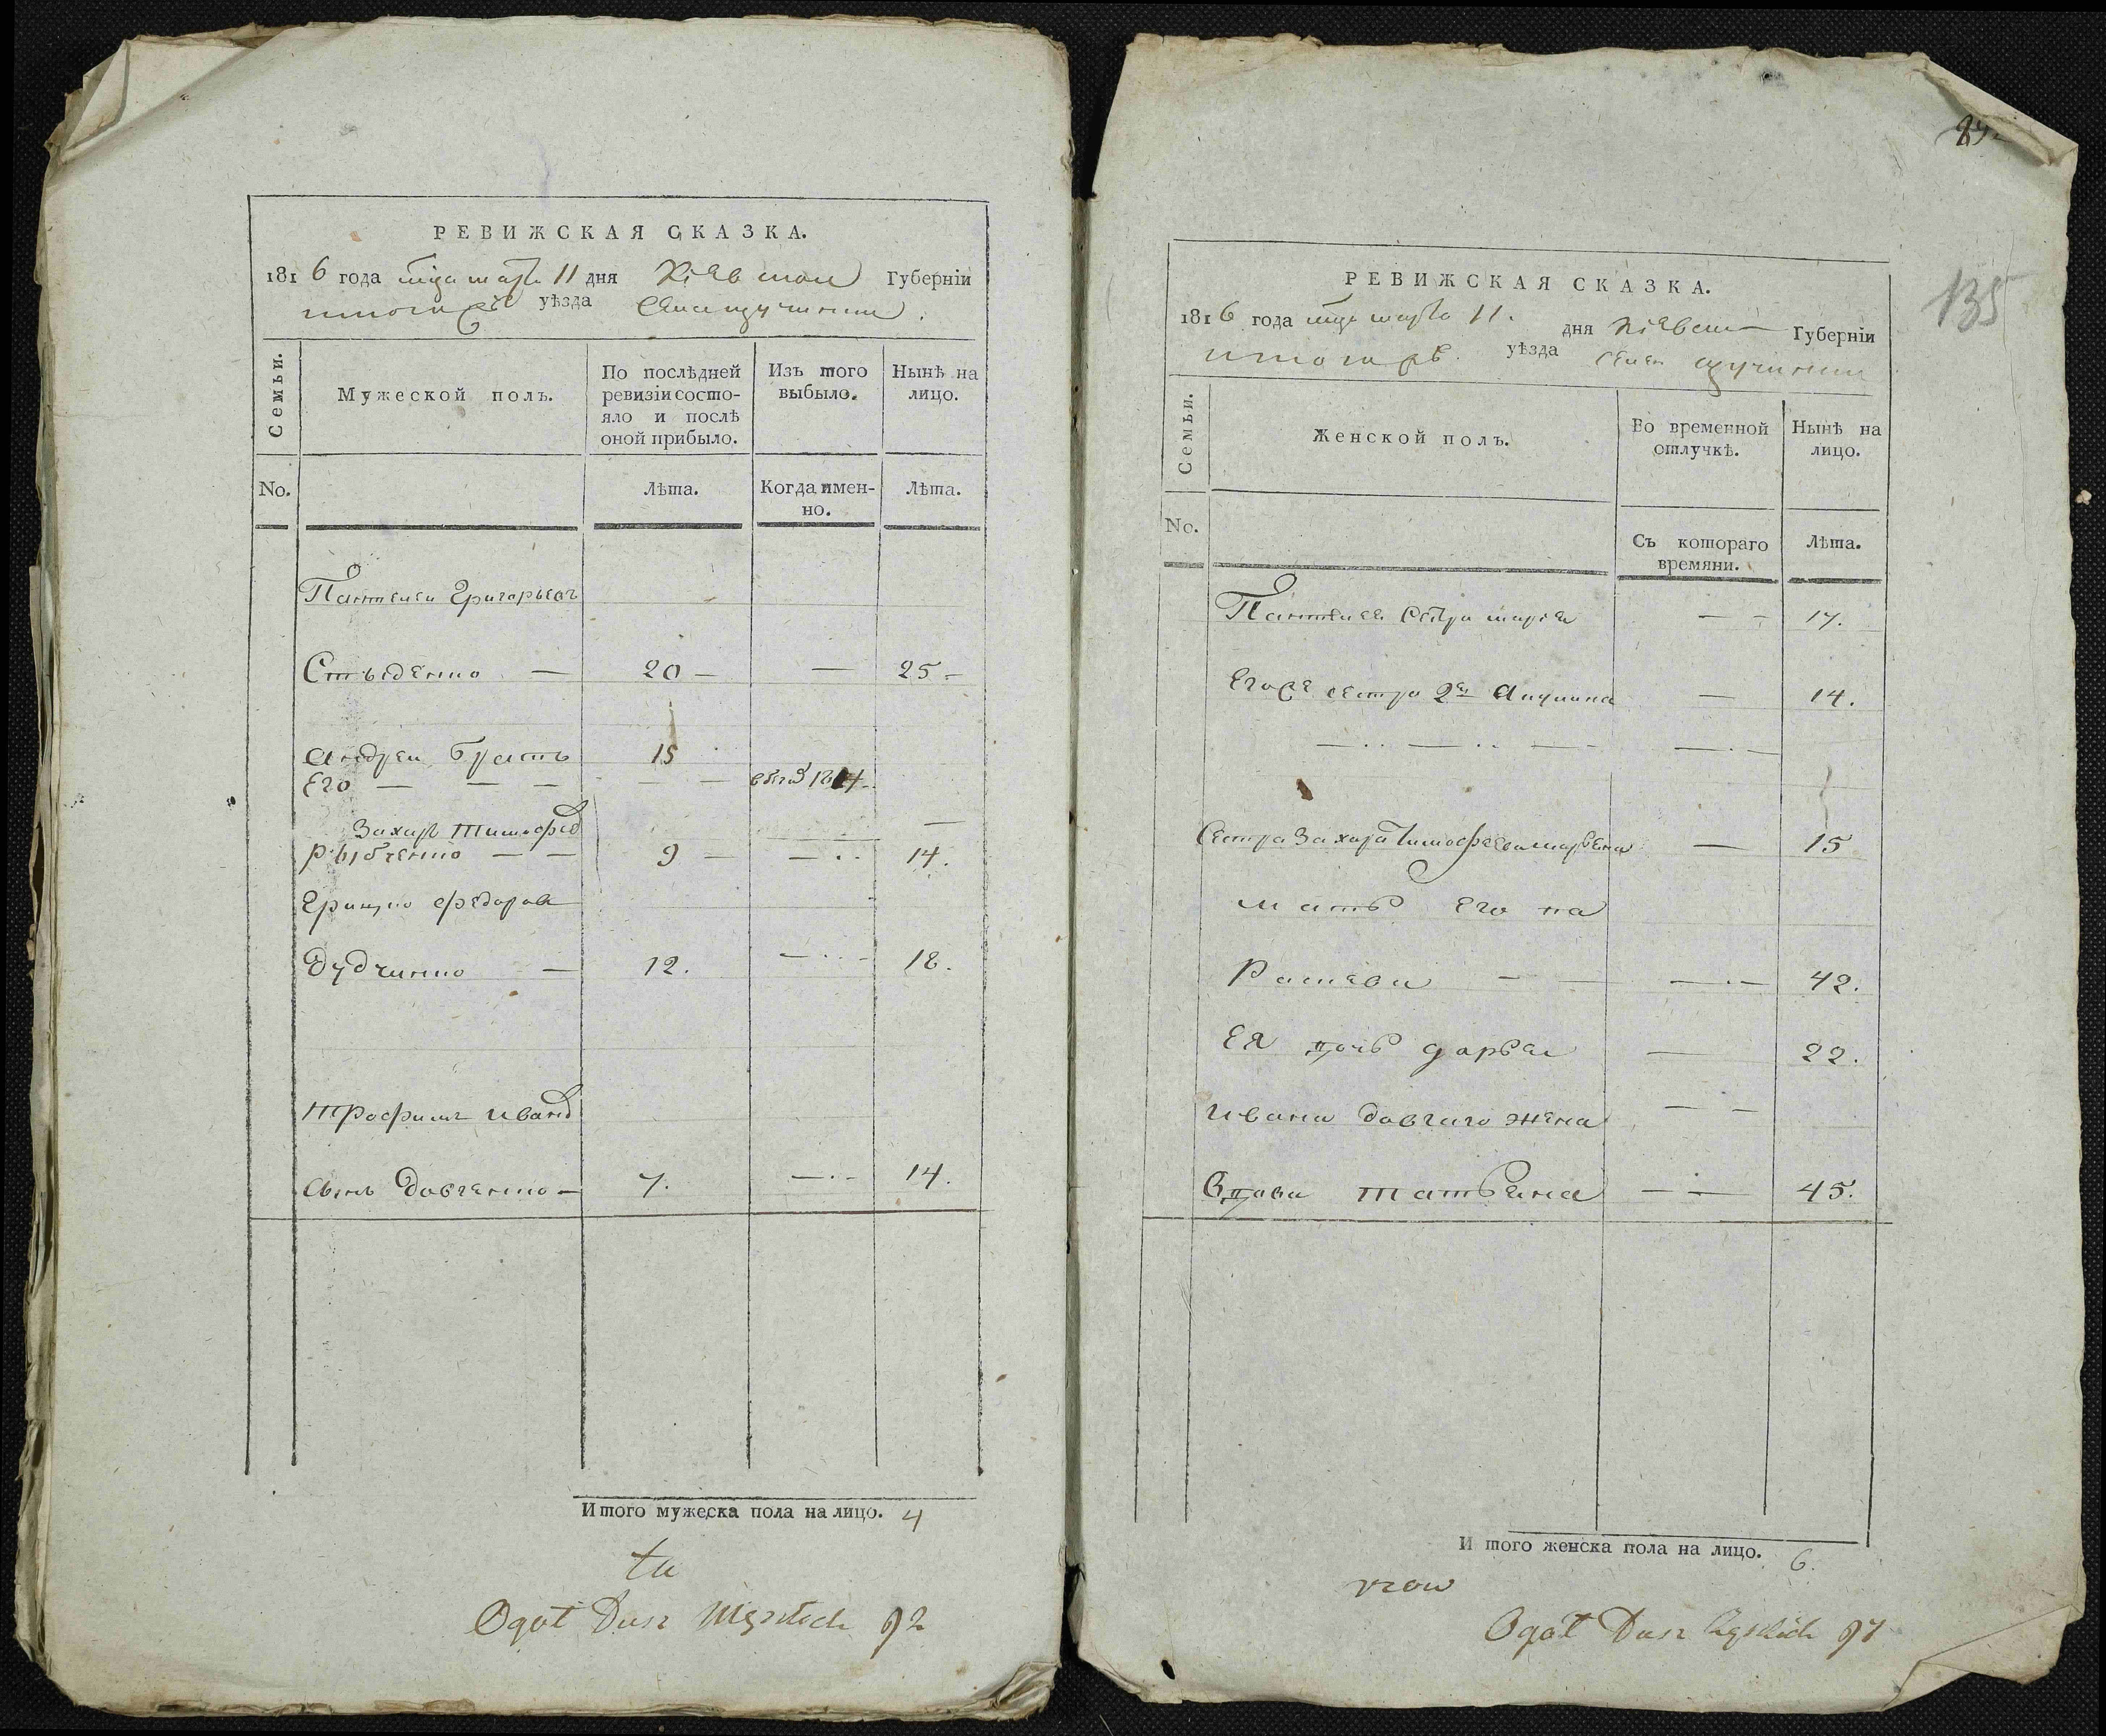 РЕВИЖСКАЯ СКАЗКА.
1816 года м҃ца марта 11 дня Кіевской Губерніи
уѣзда
Семьи.
Мужеской полъ.
По послѣдней ревизіи состояло и послѣ оной прибыло.
Изъ того выбыло.
Нынѣ на лицо.
No.
Лѣта.
Когда именно.
Лѣта.
Пантелеи Григорьевъ
20 — — 25 —
Андреи братъ 15
Его — — — — — 1814
Захаръ Тимофеев
Рыбченко — — 9 — — 14.
Грицко Федоров
Дудчинко — 12. — 18.
Трофимъ Иванов
сынъ Довгенко — 7. — 14.
Итого мужеска пола на лицо. 4
tu
Ogół Dusz Męzkich 92
135
РЕВИЖСКАЯ СКАЗКА.
1816 года м҃ца марта 11. дня Кіевской Губерніи
уѣзда
Семьи.
Женской полъ.
Во временной отлучкѣ.
Нынѣ на лицо.
No.
Съ котораго времяни.
Лѣта.
Пантелея сестра Мария — — 17.
Егоже сестра 2я Акулина — 14.
Сестра Захара Тимофеева Марьяна — 15
мать Его па
Раскева — — — 42.
Ея дочь дарья — 22.
Ивана довгаго жена — —
Вдова Татьяна — — 45.
И того женска пола на лицо. 6.
Ogół Dusz 97